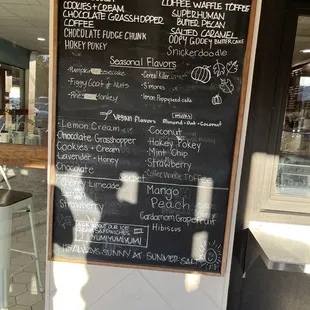 COOKIES + CREAM
COFFEE WAFFLE TOFFEE
CHOCOLATE GRASSHOPPER
SUPERHUMAN
COFFEE
BUTTER PECAN
CHOCOLATE FUDGE CHUNK
SALTED CARAMEL
HOKEY POKEY
OOEY GOOEY BUTTERCAKE
Snickerdoodle
Seasonal Flavors
Pumpkin
Cereal Killer
Figgy Goat & Nuts
S'mores
Monkey
Lemon Poppyseed cake
Vegan Flavors
Almond + Oat + Coconut
Lemon Cream
Coconut
Chocolate Grasshopper
Hokey Pokey
Cookies + Cream
Mint Chip
Lavender + Honey
Strawberry
Chocolate
Coffee Waffle Toffee
Sorbet
Limeade
Mango
Peach
Strawberry
Cardamom Grapefruit
Hibiscus
ASK ABOUT OUR ICE
CREAM SANDWICHES
YUMYUMYUMYUM
ALWAYS SUNNY AT SUMMER